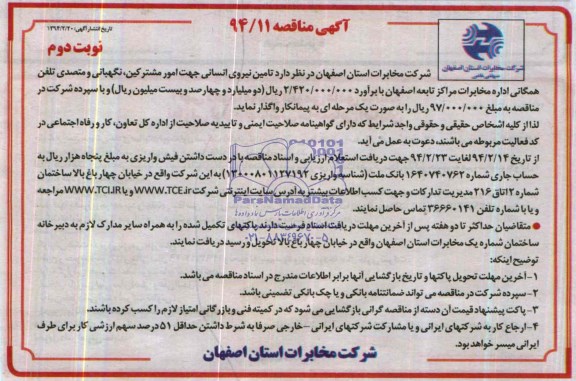 آگهی مناقصه ۹۴/۱۱
تاریخ انتشار آگهی: ۱۳۹۴/۲/۲۰
نوبت دوم
شرکت مخابرات استان اصفهان
سهامی خاص
شرکت مخابرات استان اصفهان در نظر دارد تامین نیروی انسانی جهت امور مشترکین، نگهبانی و متصدی تلفن
همگانی اداره مخابرات مراکز تابعه اصفهان با برآورد ۲/۴۲۰/۰۰۰/۰۰۰ ریال (دو میلیارد و چهارصد و بیست میلیون ریال) و با سپرده شرکت در
مناقصه به مبلغ ۹۷/۰۰۰/۰۰۰ ریال را به صورت یک مرحله ای به پیمانکار واگذار نماید.
لذا از کلیه اشخاص حقیقی و حقوقی واجد شرایط که دارای گواهینامه صلاحیت ایمنی و تاییدیه صلاحیت از اداره کل تعاون، کار و رفاه اجتماعی در
کد فعالیت مربوطه می باشند، دعوت به عمل می آید.
از تاریخ ۹۴/۲/۱۴ لغایت ۹۴/۲/۲۳ جهت دریافت استعلام ارزیابی و اسناد مناقصه با در دست داشتن فیش واریزی به مبلغ پنجاه هزار ریال به
حساب جاری شماره ۱۶۴۰۷۴۰۷۶۲ بانک ملت (شناسه واریزی ۱۳۰۰۰۸۰۱۱۲۷۱۹۲) به این شرکت واقع در خیابان چهارباغ بالا ساختمان
شماره ۲ اتاق ۲۱۶ مدیریت تدارکات و جهت کسب اطلاعات بیشتر به آدرس سایت اینترنتی شرکت WWW.TCE.ir و یا WWW.TCI.IR مراجعه
و یا با شماره تلفن ۳۶۶۶۰۱۴۱ تماس حاصل نمایند.
● متقاضیان حداکثر تا دو هفته پس از آخرین مهلت دریافت اسناد فرصت دارند پاکتهای تکمیل شده را به همراه سایر مدارک لازم به دبیرخانه
ساختمان شماره یک مخابرات استان اصفهان واقع در خیابان چهارباغ بالا تحویل و رسید دریافت نمایند.
توضیح اینکه:
۱- آخرین مهلت تحویل پاکتها و تاریخ بازگشایی آنها برابر اطلاعات مندرج در اسناد مناقصه می باشد.
۲- سپرده شرکت در مناقصه می تواند ضمانتنامه بانکی و یا چک بانکی تضمینی باشد.
۳- پاکت پیشنهاد قیمت آن دسته از مناقصه گرانی بازگشایی می شود که در کمیته فنی و بازرگانی امتیاز لازم را کسب کرده باشند.
۴- ارجاع کار به شرکتهای ایرانی و یا مشارکت شرکتهای ایرانی – خارجی صرفا به شرط داشتن حداقل ۵۱ درصد سهم ارزشی کار برای طرف
ایرانی میسر خواهد بود.
شرکت مخابرات استان اصفهان
ParsNamadData
۰۲۱-۸۸۳۴۹۶۷۰-۵